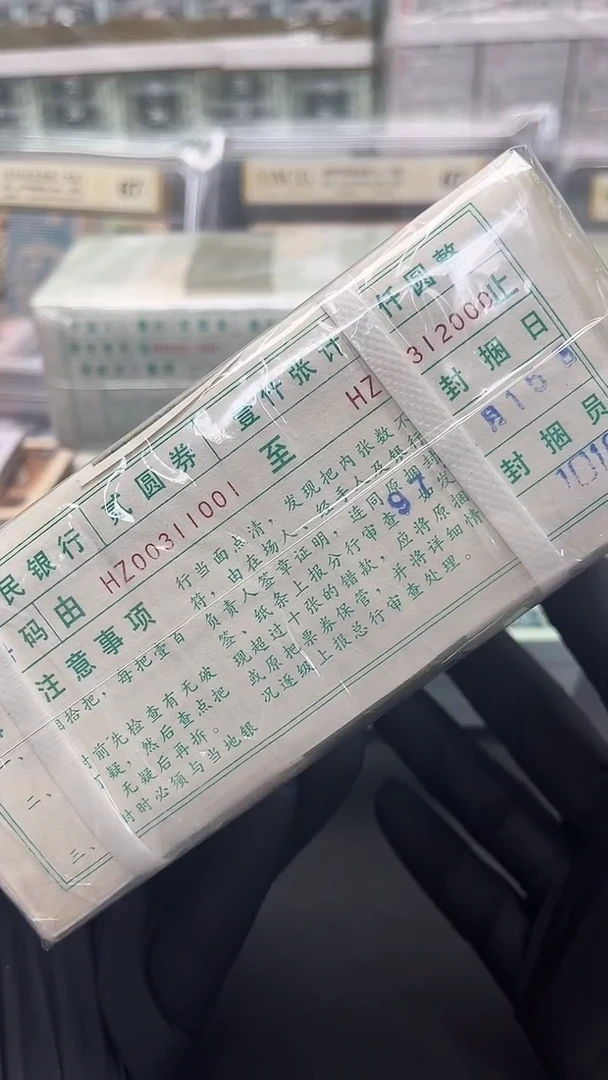 民银行 贰圆券 壹仟张计 仟圆整
码由 HZ00311001 至 HZ 312000止
注意事项
拾把，每把壹百
二、 前先检查有无破
疑，然后查点把
无疑后再拆。
三、 封时必须与当地银
行当面点清，发现把内张数不
符，由在场人、经手人及银行
负责人签章证明，连同原捆封
签、纸条上报分行审查 发
现超过十张的错款，应将原捆
或原把票券保管，并将详细情
况逐级上报总行审查处理。
97
封捆日
月15
封捆员
1010